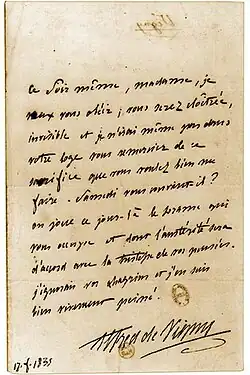 Vigny
Ce soir même, madame, je
veux vous obéir ; vous serez cloîtrée,
invisible et je n'irai même pas dans
votre loge vous remercier de ce
sacrifice que vous voulez bien me
faire. Samedi vous convient il ?
on joue ce jour-là le drame qui
vous occupe et dont l'austérité sera
d'accord avec la tristesse de vos pensées.
j'ignorais vos chagrins et j'en suis
bien vivement peiné.
Alfred de Vigny
1835